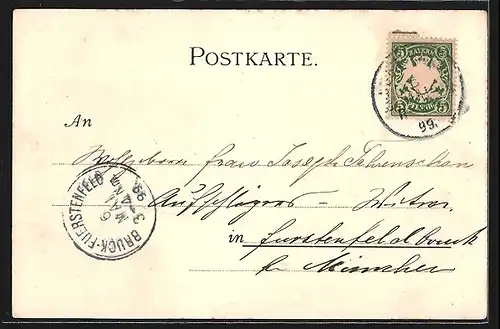 POSTKARTE.
BAYERN
5 5
5 5
PFENNIG
99.
An
Wohlgeboren Frau Joseph
Aufschlägers - Witwe
in Furstenfeldbruck
b. München
BRUCK-FUERSTENFELD
3-4 NM
6 MAI
99